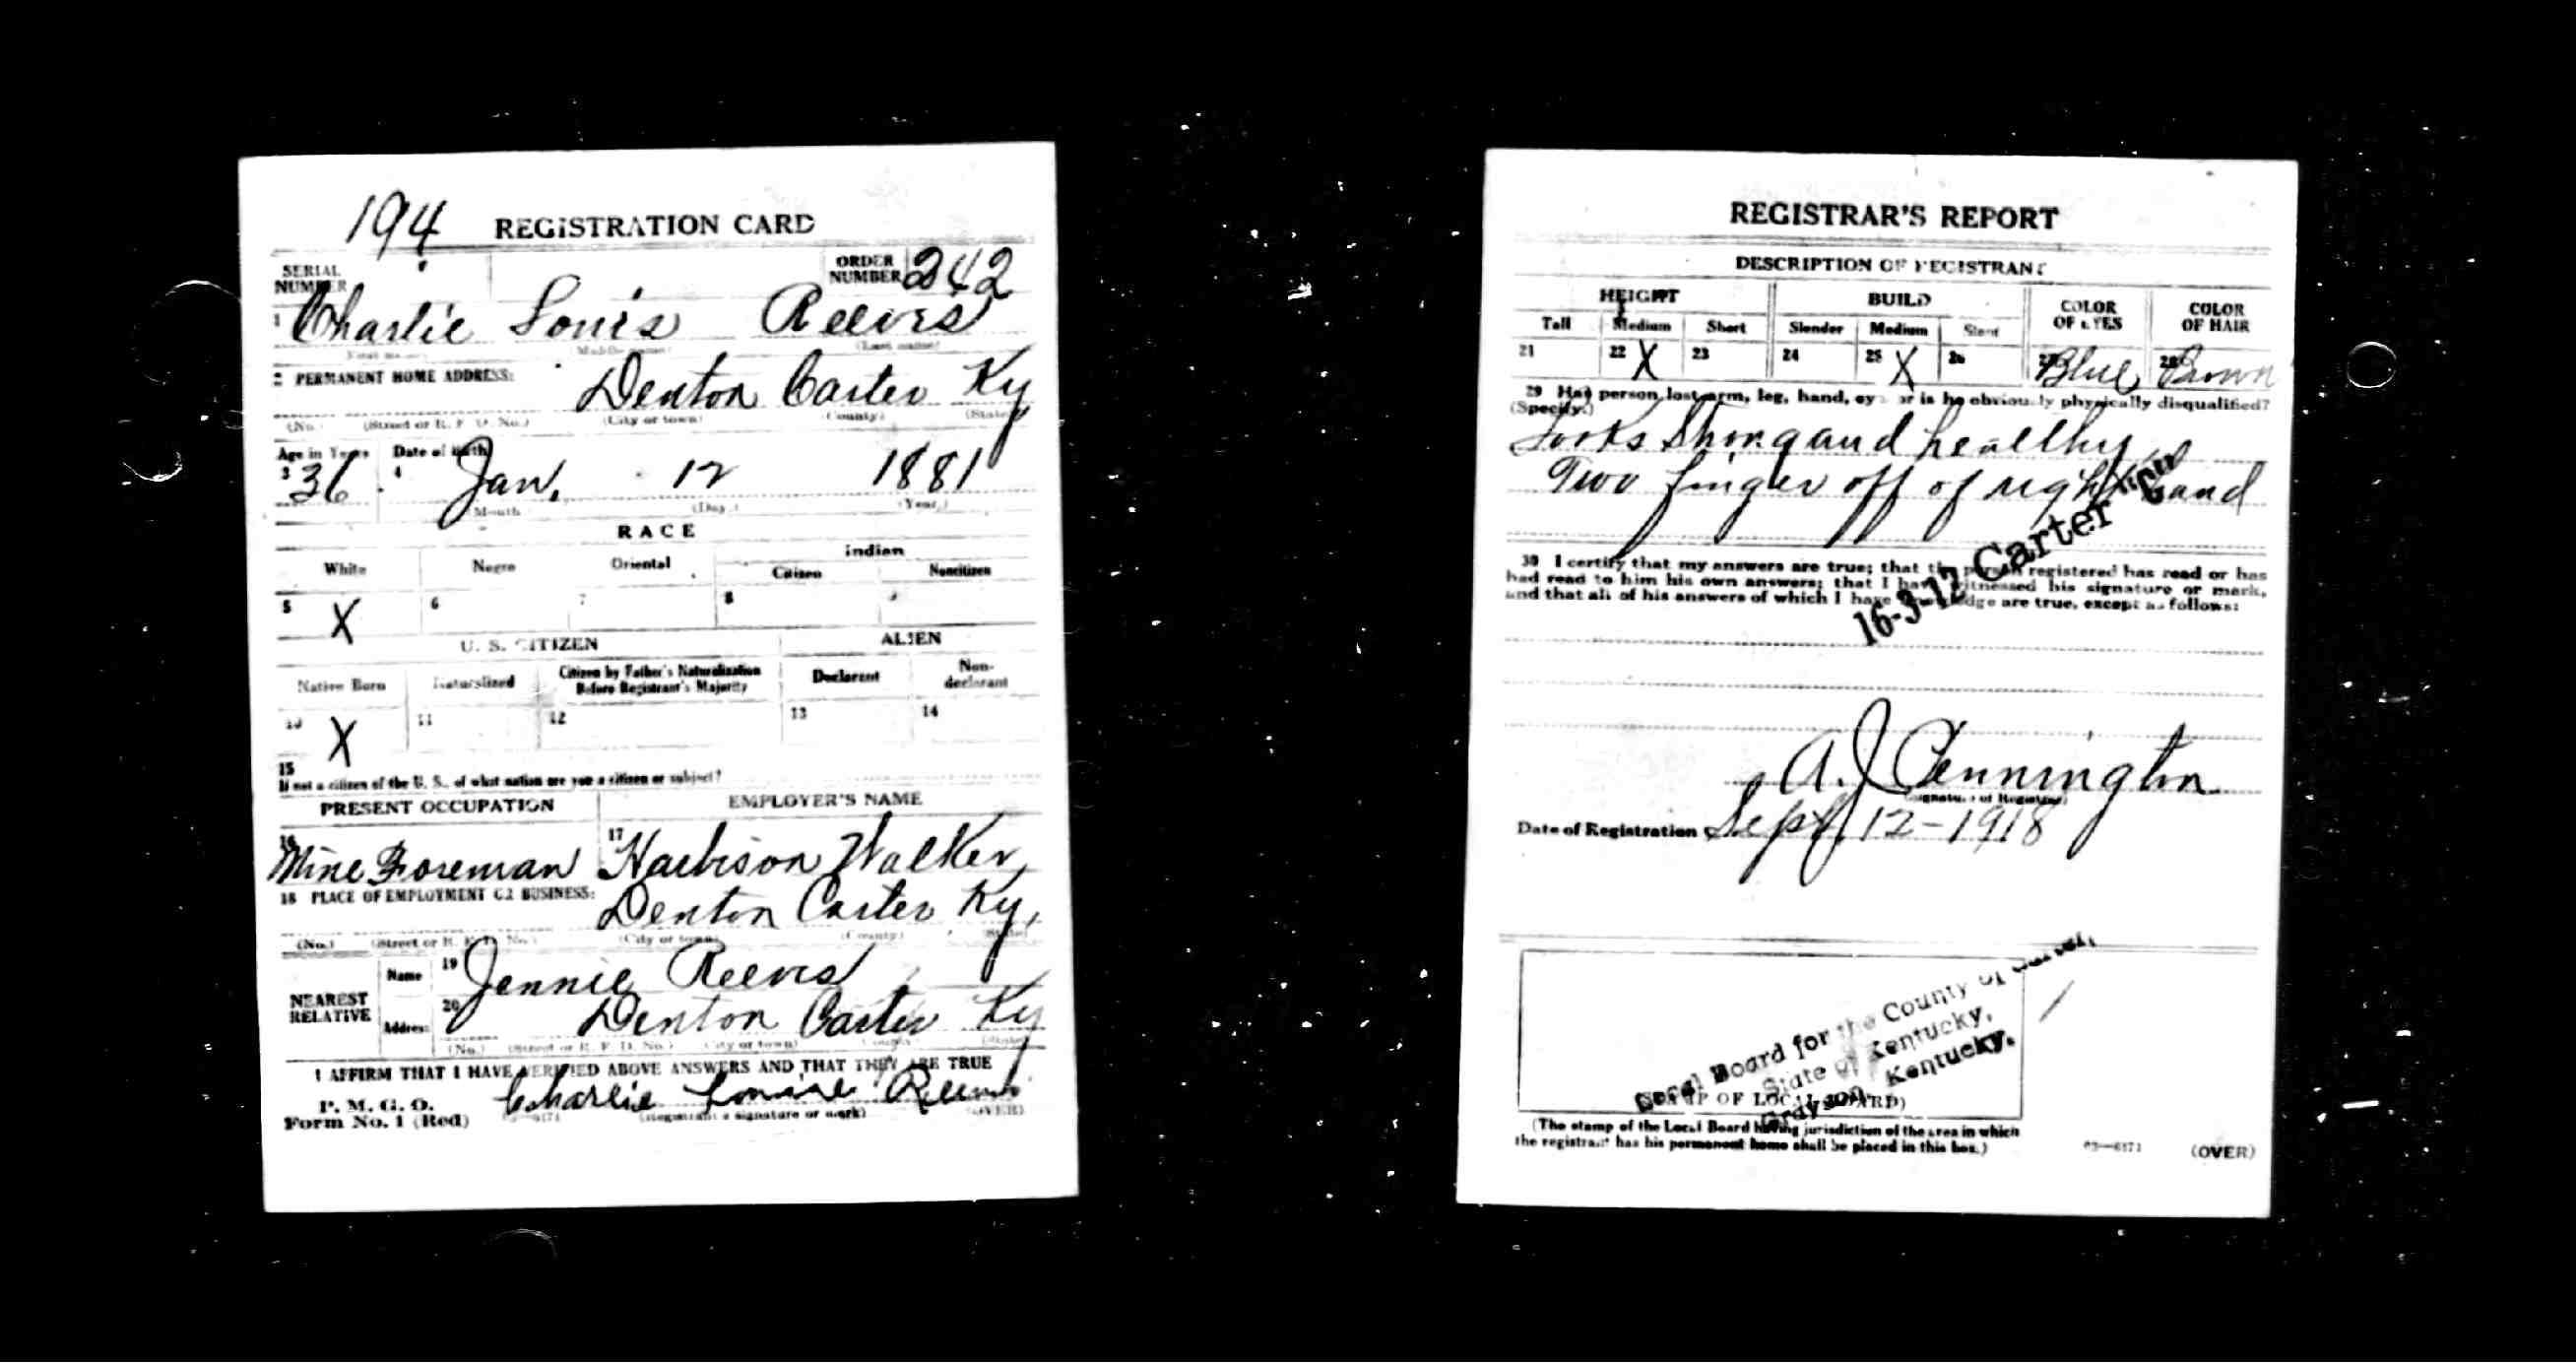 194 REGISTRATION CARD
SERIAL NUMBER
ORDER NUMBER 242
1 Charlie Louis Reeves
(Middle name) (Last name)
2 PERMANENT HOME ADDRESS: Denton Carter Ky
(No.) (Street or R. F. D. No.) (City or town) (County) (State)
Age in Years Date of Birth
3 36 4 Jan. 12 1881
Month (Day.) (Year.)
RACE
White Negro Oriental Indian
Citizen Noncitizen
5 X 6 7 8 9
U. S. CITIZEN ALIEN
Native Born Naturalized Citizen by Father's Naturalization Before Registrant's Majority Declarant Non-declarant
10 X 11 12 13 14
15
If not a citizen of the U. S., of what nation are you a citizen or subject?
PRESENT OCCUPATION EMPLOYER'S NAME
16 Mine Foreman 17 Harbison Walker
18 PLACE OF EMPLOYMENT OR BUSINESS: Denton Carter Ky,
(No.) (Street or R. F. D. No.) (City or town) (County) (State)
NEAREST RELATIVE
Name 19 Jennie Reeves
Address 20 Denton Carter Ky
(No.) (Street or R. F. D. No.) (City or town) (County) (State)
I AFFIRM THAT I HAVE VERIFIED ABOVE ANSWERS AND THAT THEY ARE TRUE
P. M. G. O.
Form No. 1 (Red)
Charlie Reeves
(Registrant's signature or mark) (OVER)
REGISTRAR'S REPORT
DESCRIPTION OF REGISTRANT
HEIGHT BUILD COLOR OF EYES COLOR OF HAIR
Tall Medium Short Slender Medium Stout
21 22 X 23 24 25 X 26 27 Blue 28 Brown
29 Has person lost arm, leg, hand, eye or is he obviously physically disqualified?
(Specify.)
Looks Strong and healthy
Two finger off of right hand
16-3-12 Carter
30 I certify that my answers are true; that the person registered has read or has
had read to him his own answers; that I have witnessed his signature or mark,
and that all of his answers of which I have knowledge are true, except as follows:
A. J. Pennington
(Signature of Registrar)
Date of Registration Sept 12 - 1918
Local Board for the County of Carter,
State of Kentucky,
Grayson, Kentucky.
(STAMP OF LOCAL BOARD)
(The stamp of the Local Board having jurisdiction of the area in which
the registrant has his permanent home shall be placed in this box.)
03—6171 (OVER)